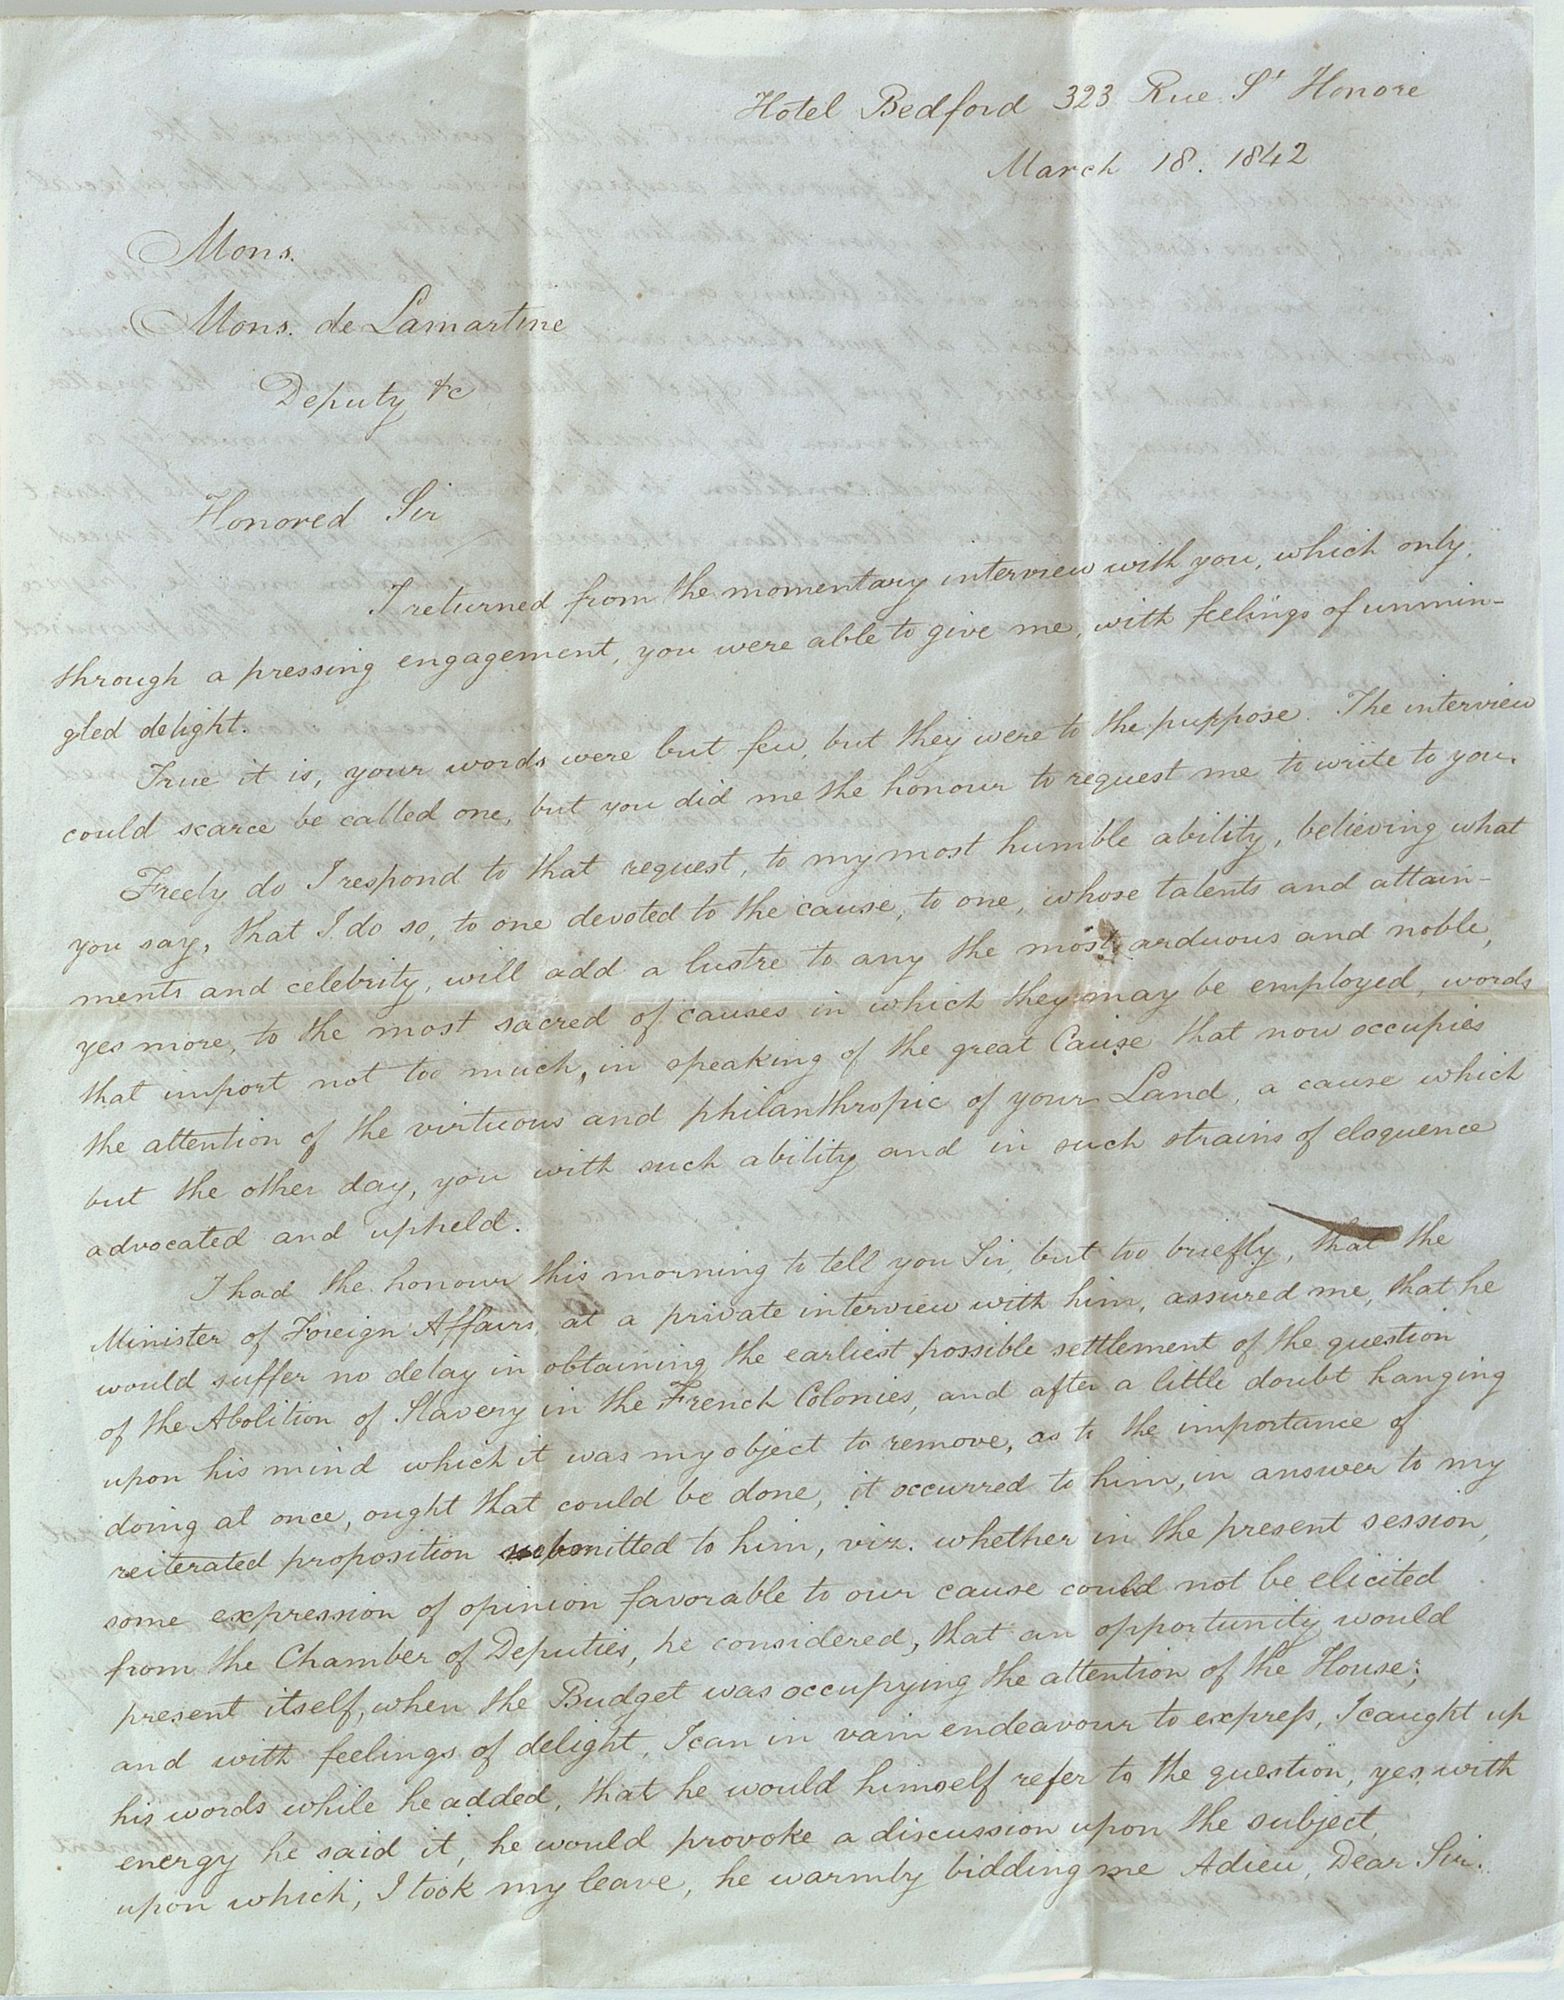 Hotel Bedford 323 Rue St Honore
March 18. 1842
Mons.
Mons. de Lamartine
Deputy &c
Honored Sir
I returned from the momentary interview with you, which only,
through a pressing engagement, you were able to give me, with feelings of unmin-
gled delight.
True it is, your words were but few, but they were to the puppose. The interview
could scarce be called one, but you did me the honour to request me to write to you.
Freely do I respond to that request, to my most humble ability, believing what
you say, that I do so, to one devoted to the cause, to one, whose talents and attain-
ments and celebrity, will add a lustre to any the most arduous and noble,
yes more, to the most sacred of causes in which they may be employed, words
that import not too much, in speaking of the great Cause that now occupies
the attention of the virtuous and philanthropic of your Land, a cause which
but the other day, you with such ability and in such strains of eloquence
advocated and upheld.
I had the honour this morning to tell you Sir, but too briefly, that the
Minister of Foreign Affairs, at a private interview with him, assured me, that he
would suffer no delay in obtaining the earliest possible settlement of the question
of the Abolition of Slavery in the French Colonies, and after a little doubt hanging
upon his mind which it was my object to remove, as to the importance of
doing at once, ought that could be done, it occurred to him, in answer to my
reiterated proposition submitted to him, viz. whether in the present session,
some expression of opinion favorable to our cause could not be elicited
from the Chamber of Deputies, he considered, that an opportunity would
present itself, when the Budget was occupying the attention of the House;
and with feelings of delight, I can in vain endeavour to express, I caught up
his words while he added, that he would himself refer to the question, yes, with
energy he said it, he would provoke a discussion upon the subject,
upon which, I took my leave, he warmly bidding me Adieu, Dear Sir.